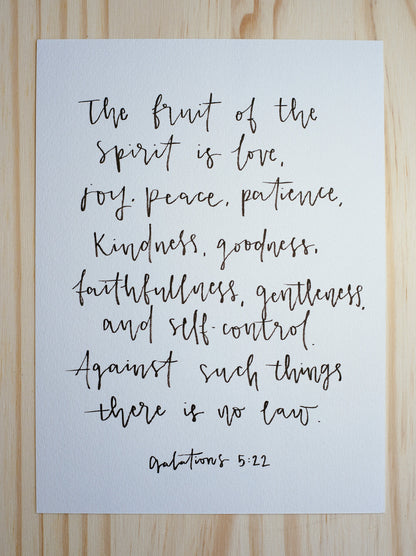 The fruit of the
spirit is love,
joy. peace, patience,
Kindness, goodness,
faithfullness, gentleness,
and self-control.
Against such things
there is no law.
Galations 5:22